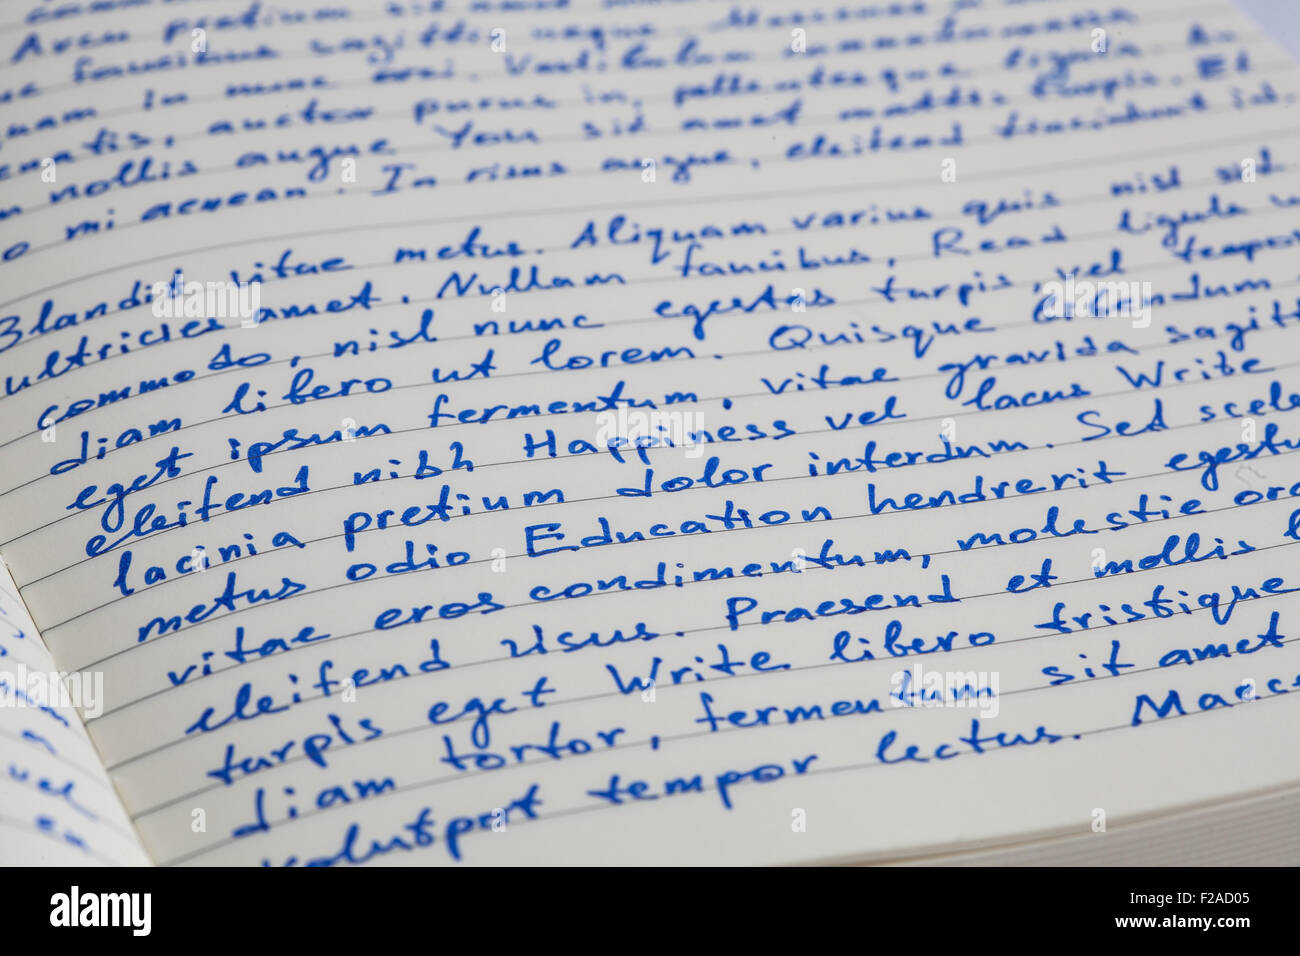 Arcu pretium sit amet
faucibus sagittis neque. Maecenas
quam in nunc orci. Vestibulum
auctor purus in, pellentesque ligula
mollis augue You sit amet mattis turpis. Et
mi aenean. In risus augue, eleifend tincidunt id.
Blandit vitae metus. Aliquam varius quis nisl sed
ultricies amet. Nullam faucibus, Read ligula
commodo, nisl nunc egestas turpis, vel tempor
diam libero ut lorem. Quisque bibendum
eget ipsum fermentum, vitae gravida sagitt
eleifend nibh Happiness vel lacus Write
lacinia pretium dolor interdum. Sed scele
metus odio Education hendrerit egestu
vitae eros condimentum, molestie orc
eleifend risus. Praesend et mollis l
turpis eget Write libero tristique
diam tortor, fermentum sit amet
volutpat tempor lectus. Maece
vel
alamy stock photo
alamy
Image ID: F2AD05
www.alamy.com